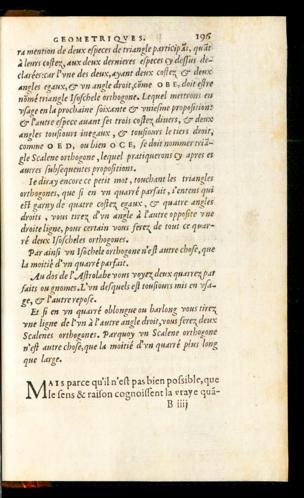 GEOMETRIQVES. 196
ra mention de deux especes de triangle participãt, quãt
à leurs costez, aux deux dernieres especes cy dessus de-
clarées: car l'vne des deux, ayant deux costez & deux
angles egaux, & vn angle droit, cõme OBE, doit estre
nõmé triangle Isoschele orthogone. Lequel mettrons en
vsage en la prochaine soixante & vniesme proposition:
& l'autre espece auant ses trois costez diuers, & deux
angles tousiours inegaux, & tousiours le tiers droit,
comme OED, ou bien OCE, se doit nommer triã-
gle Scalene orthogone, lequel pratiquerons cy apres es
autres subsequentes propositions.
Ie diray encore ce petit mot, touchant les triangles
orthogones, que si en vn quarré parfait, i'entens qui
est garny de quatre costez egaux, & quatre angles
droits, vous tirez d'vn angle à l'autre opposite vne
droite ligne, pour certain vous ferez de tout ce quar-
ré deux Isoscheles orthogones.
Par ainsi vn Isoschele orthogone n'est autre chose, que
la moitié d'vn quarré parfait.
Au dos de l'Astrolabe vous voyez deux quarrez par
faits ou gnomes. L'vn desquels est tousiours mis en vsa-
ge, & l'autre repose.
Et si en vn quarré oblongue ou barlong vous tirez
vne ligne de l'vn à l'autre angle droit, vous ferez deux
Scalenes orthogones. Parquoy vn Scalene orthogone
n'est autre chose, que la moitié d'vn quarré plus long
que large.
MAIS parce qu'il n'est pas bien possible, que
le sens & raison cognoissent la vraye quã-
B iiij